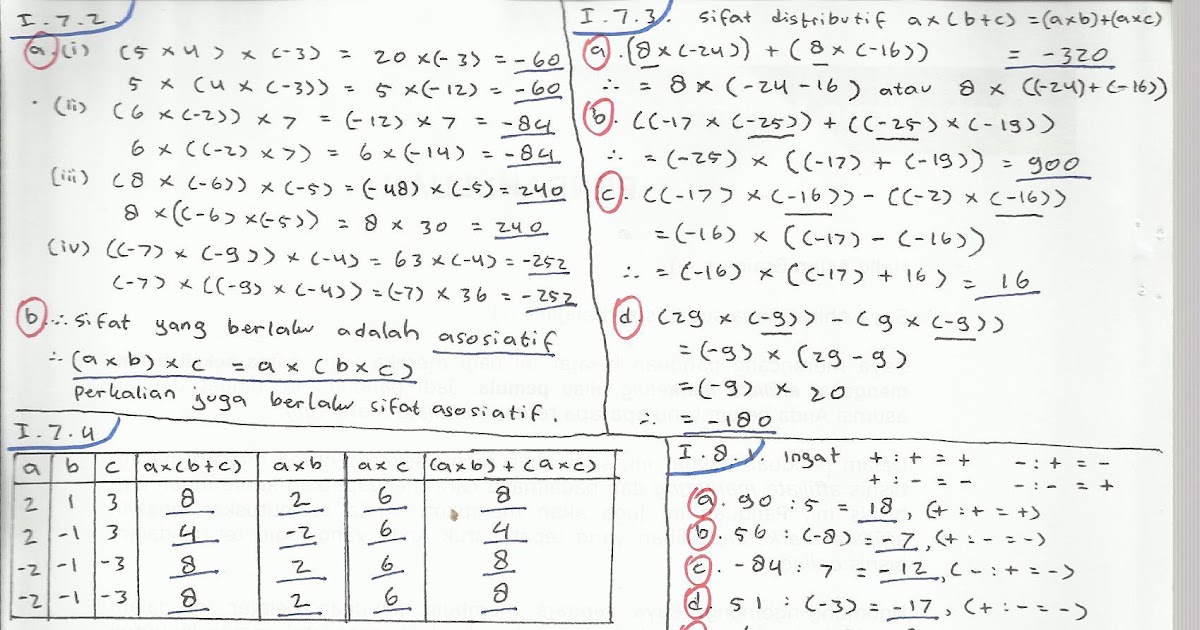 I.7.2
a.(i) (5 x 4) x (-3) = 20 x (-3) = -60
5 x (4 x (-3)) = 5 x (-12) = -60
(ii) (6 x (-2)) x 7 = (-12) x 7 = -84
6 x ((-2) x 7) = 6 x (-14) = -84
(iii) (8 x (-6)) x (-5) = (-48) x (-5) = 240
8 x ((-6) x (-5)) = 8 x 30 = 240
(iv) ((-7) x (-9)) x (-4) = 63 x (-4) = -252
(-7) x ((-9) x (-4)) = (-7) x 36 = -252
b. ∴ sifat yang berlaku adalah asosiatif
∴ (a x b) x c = a x (b x c)
perkalian juga berlaku sifat asosiatif.
I.7.3. sifat distributif a x (b+c) = (a x b) + (a x c)
a. (8 x (-24)) + (8 x (-16)) = -320
∴ = 8 x (-24 - 16) atau 8 x ((-24) + (-16))
b. ((-17 x (-25)) + ((-25) x (-19))
∴ = (-25) x ((-17) + (-19)) = 900
c. ((-17) x (-16)) - ((-2) x (-16))
= (-16) x ((-17) - (-16))
∴ = (-16) x ((-17) + 16) = 16
d. (29 x (-9)) - (9 x (-9))
= (-9) x (29 - 9)
= (-9) x 20
∴ = -180
I.7.4
a b c a x (b+c) a x b a x c (a x b) + (a x c)
2 1 3 8 2 6 8
2 -1 3 4 -2 6 4
-2 -1 -3 8 2 6 8
-2 -1 -3 8 2 6 8
I.8.1. Ingat + : + = + - : + = -
+ : - = - - : - = +
a. 90 : 5 = 18, (+ : + = +)
b. 56 : (-8) = -7, (+ : - = -)
c. -84 : 7 = -12, (- : + = -)
d. 51 : (-3) = -17, (+ : - = -)